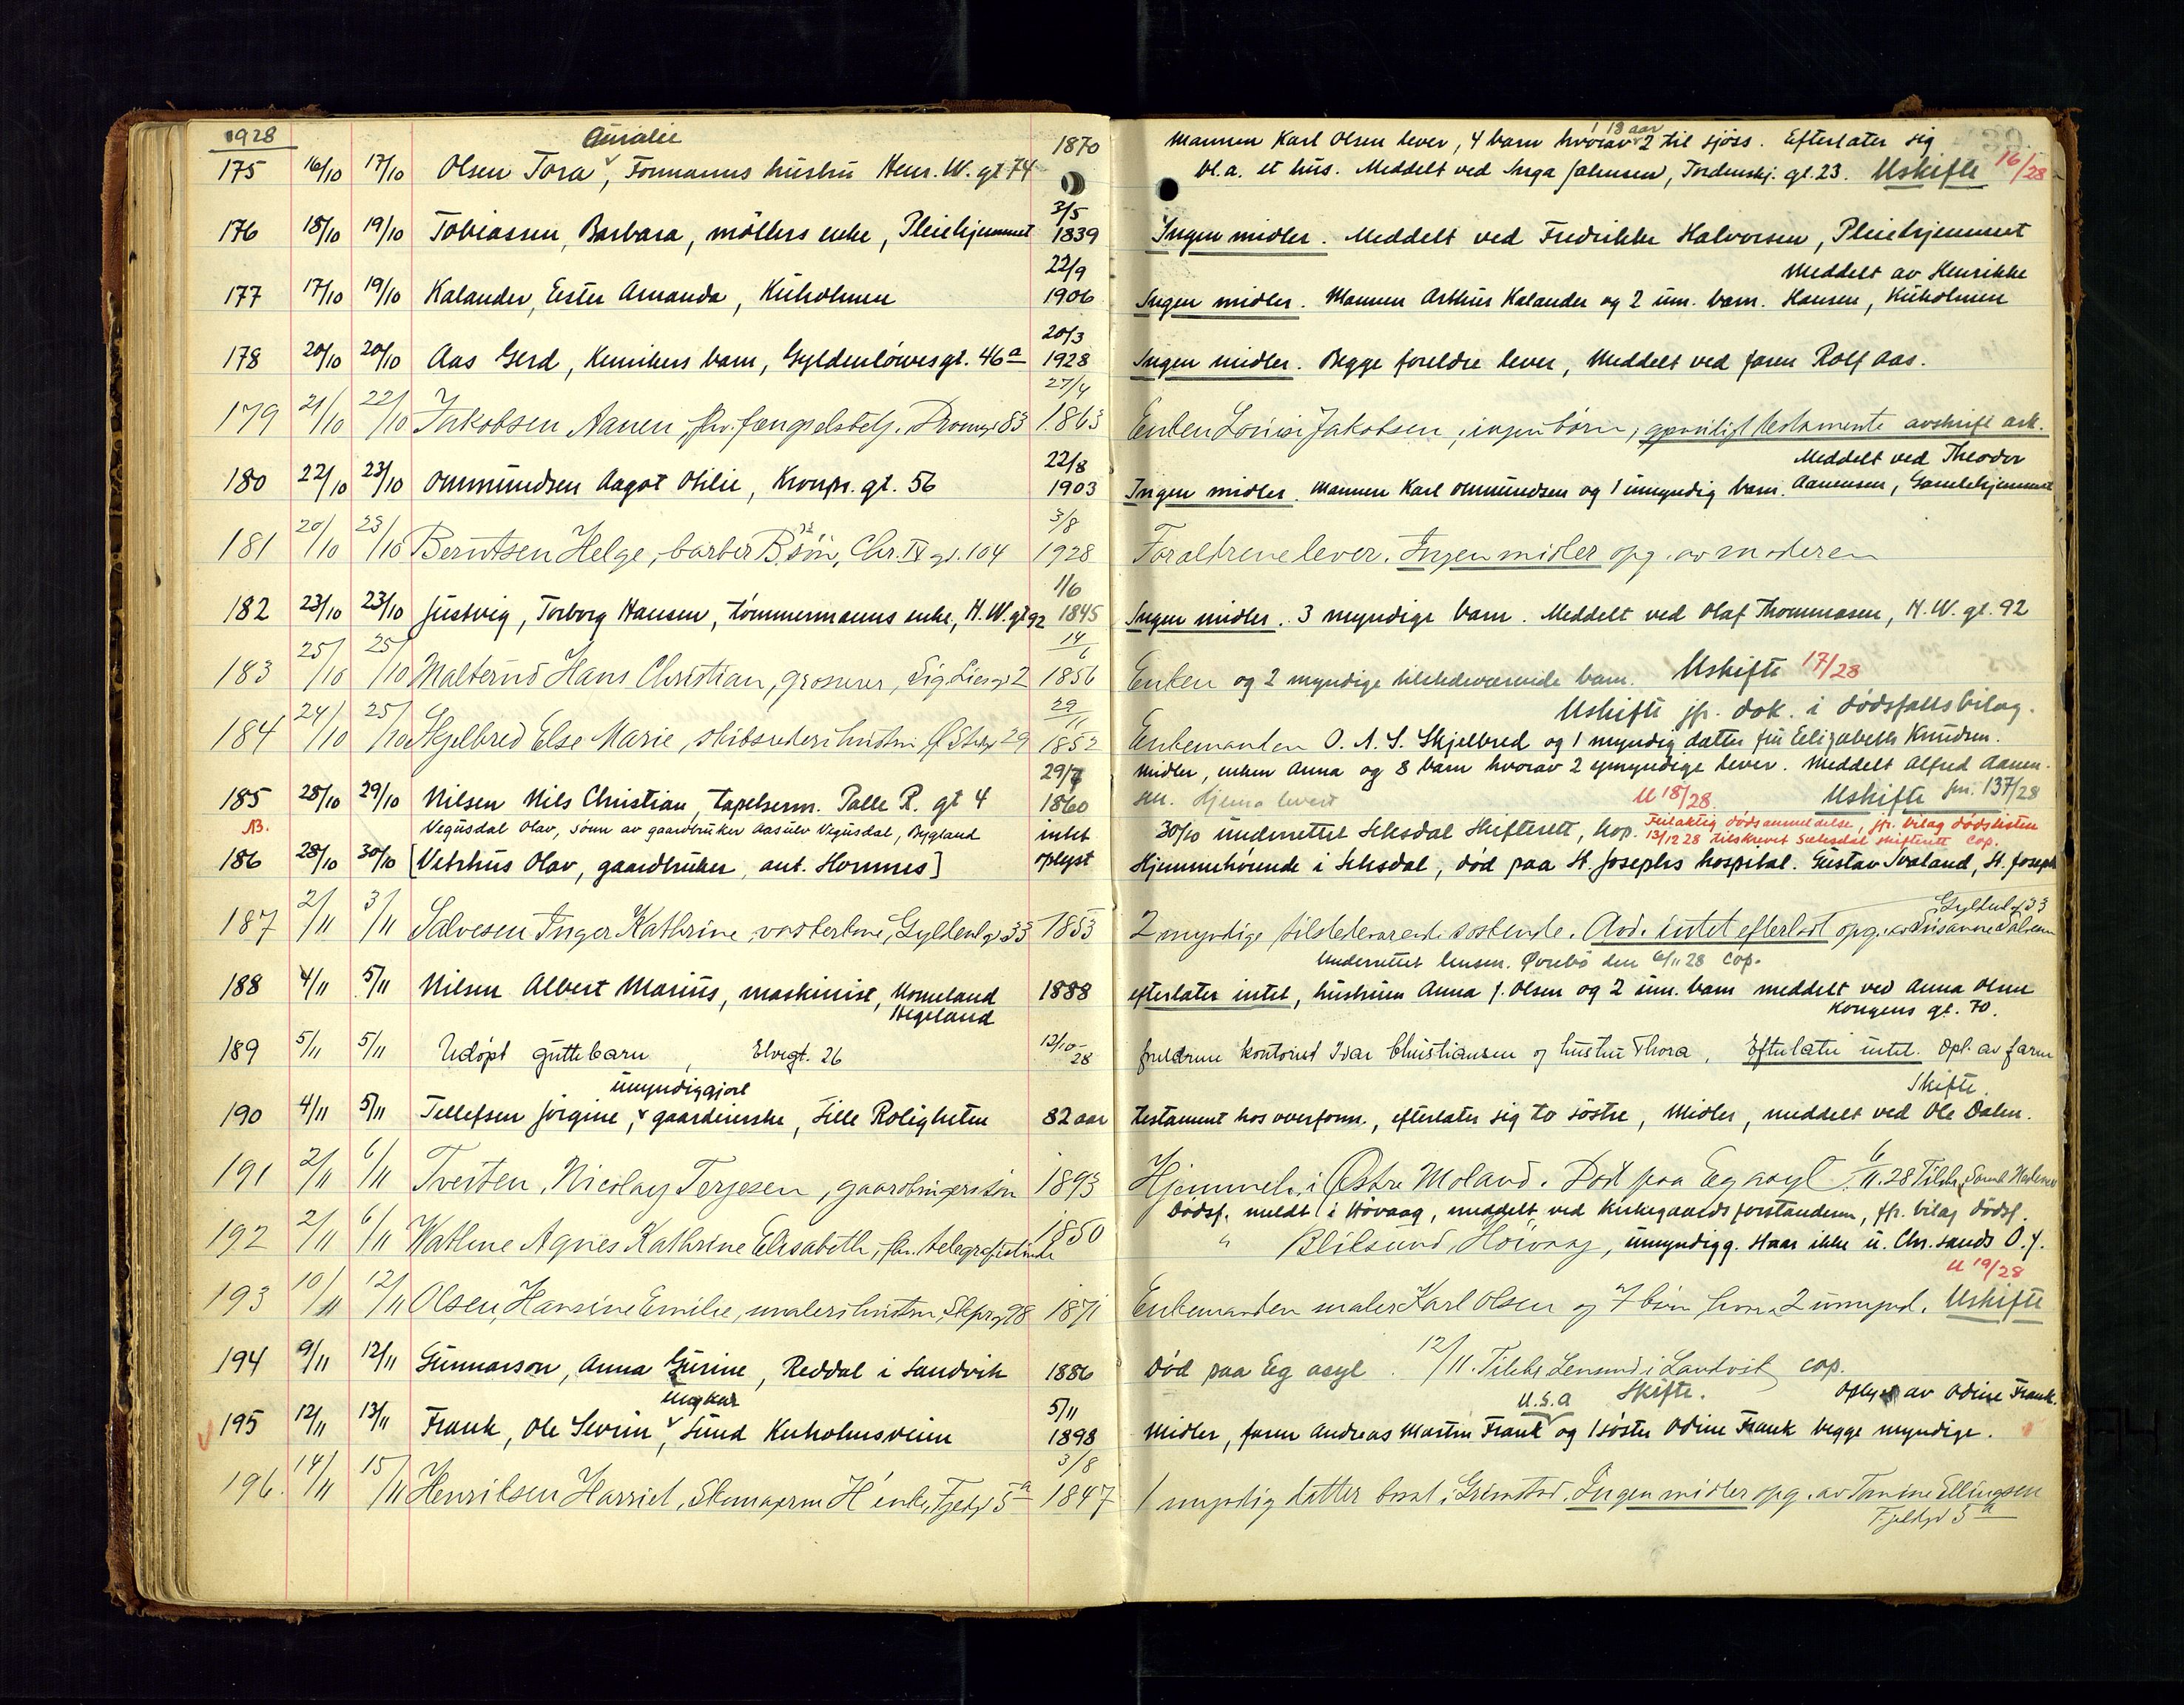 1928
Amalie 1870 Mannen Karl Olsen lever, 4 barn hvorav 1 18 aar 2 til sjöss. Efterlater sig
175 16/10 17/10 Olsen Tora, Formanns hustru Henr. W. gt 74 bl.a. et hus. Meddelt ved Inga Johnsen, Tordenskj. gt. 23. Uskifte 16/28
3/5
176 18/10 19/10 Tobiassen, Barbara, möllers enke, Pleiehjemmet 1839 Ingen midler. Meddelt ved Fredrikke Halvorsen, Pleiehjemmet
22/9 Meddelt av Henrikke
177 17/10 19/10 Kalander, Ester Amanda, Kuholmen 1906 Ingen midler. Mannen Arthur Kalander og 2 um. barn. Hansen, Kuholmen
20/3
178 20/10 20/10 Aas Gerd, Kemikers barn, Gyldenlöwesgt. 46a 1928 Ingen midler. Begge foreldre lever, Meddelt ved faren Rolf Aas.
27/4
179 21/10 22/10 Jakobsen Aanen, fhv. fængselsbetj. Dronngt 83 1863 Enken Louise Jakobsen, ingen börn, gjensidigt testamente avskrift ark.
22/8 Meddelt ved Theodor
180 22/10 23/10 Ommundsen Aagot Otilie, Kronpr. gt. 56 1903 Ingen midler. Mannen Karl Ommundsen og 1 umyndig barn. Aanensen, Gamlehjemmet
3/8
181 20/10 23/10 Berntsen Helge, barber B.s sön, Chr. IV gt. 104 1928 Forældrene lever. Ingen midler opg. av moderen
1/6
182 23/10 23/10 Justvig, Torborg Hansen, tömmermanns enke, H.W. gt 92 1845 Ingen midler. 3 myndige barn. Meddelt ved Olaf Thommasen, H.W. gt. 92
14/6
183 25/10 25/10 Malterud Hans Christian, grosserer, 2 1856 Enken og 2 myndige tilstedeværende barn. Uskifte 17/28
29/11 Uskifte jfr. dok. i dödsfallsbilag.
184 24/10 25/10 Skjelbred Else Marie, skibsreders hustru, Ö. Strgt 29 1852 Enkemanden O. A. S. Skjelbred og 1 myndig datter fru Elizabeth Knudsen.
29/7 Midler, enken Anna og 8 barn hvorav 2 umyndige lever. Meddelt Alfred Aanen-
185 28/10 29/10 Nilsen Nils Christian, tapetserm. Palle R. gt 4 1860 sen. U 18/28. Uskifte jnr. 137/28
NB. Vegusdal Olav, sönn av gaardbruker Aasulv Vegusdal, Bygland intet 30/10 underrettet Setesdal Skifterett, kop. Feilaktig dödsanmeldelse, jfr. bilag dödslisten
13/12 28 tilskrevet Setesdal skifterett cop.
186 28/10 30/10 [Vetrhus Olav, gaardbruker, ant. Hornnes] oplyst Hjemmehörende i Setesdal, död paa St. Josephs hospital. Gustav Svaland, St. Joseph
Gyldenl. gt 33
187 2/11 3/11 Salvesen Inger Kathrine, vasterkone, Gyldenl. gt 33 1853 2 myndige tilstedeværende söskende. Avd. intet efterladt opg. av Susanne Salvesen
Underrettet lensm. Övrebö den 6/11 28 cop.
188 4/11 5/11 Nilsen Albert Marius, maskinist, Homeland 1888 efterlater intet, hustruen Anna J. Olsen og 2 um. barn meddelt ved Anna Olsen
Hegeland Kongens gt. 70.
189 5/11 5/11 Udöpt guttebarn, Elvegt. 26 12/10-28 foreldrene kontorist Ivar Christiansen og hustru Thora, Efterlater intet. Opl. av faren
umyndiggjort Skifte
190 4/11 5/11 Tellefsen Jörgine, gaardeierske, Lille Roligheten 82 aar testament hos overform., efterlater sig to söstre, Midler, meddelt ved Ole Dalen.
191 2/11 6/11 Tveiten, Nicolay Terjesen, gaardbrugers sön 1893 Hjemmeh. i Östre Moland. Död paa Eg asyl 6/11.28 Tilskr.
Dödsf. meldt i Hövaag, meddelt ved kirkegaardsforstanderen, jfr. bilag dödsf.
192 2/11 6/11 Wathne Agnes Kathrine Elisabeth, fhv. telegrafistinde 1850 " Blilsund, Höivaag, umyndigg. Staar ikke u. Chr.sands O.f.
U 19/28
193 10/11 12/11 Olsen, Hansine Emilie, malers hustru, Skprgt 98 1871 Enkemanden maler Karl Olsen og 7 börn hvorav 2 umynd. Uskifte
194 9/11 12/11 Gunnarson, Anna Gurine, Reddal i Landvik 1886 Död paa Eg asyl. 12/11. Tilskr. Lensmd i Landvik cop.
Ungkar 5/11 U.S.A Skifte. Oplyst av Odine Frank.
195 12/11 13/11 Frank, Ole Severin, Lund Kuholmsveien 1898 Midler, faren Andreas Martin Frank og 1 söster Odine Frank begge myndige.
3/8
196. 14/11 15/11 Henriksen Harriet, Skomagerm H enke, Fjeldgt 5a 1847 1 myndig datter bosat i Grimstad. Ingen midler opg. av Tomine Ellingsen
Fjeldgt 5a